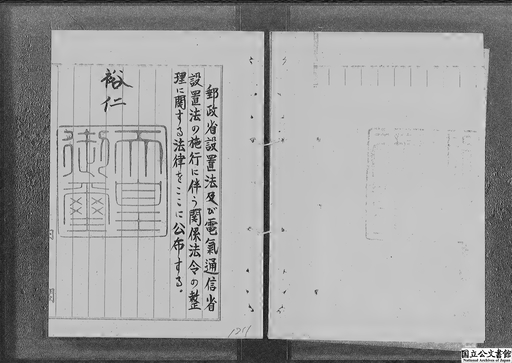 郵政省設置法及び電氣通信省
設置法の施行に伴う関係法令の整
理に関する法律をここに公布する。
裕仁
天皇
御璽
国立公文書館
National Archives of Japan